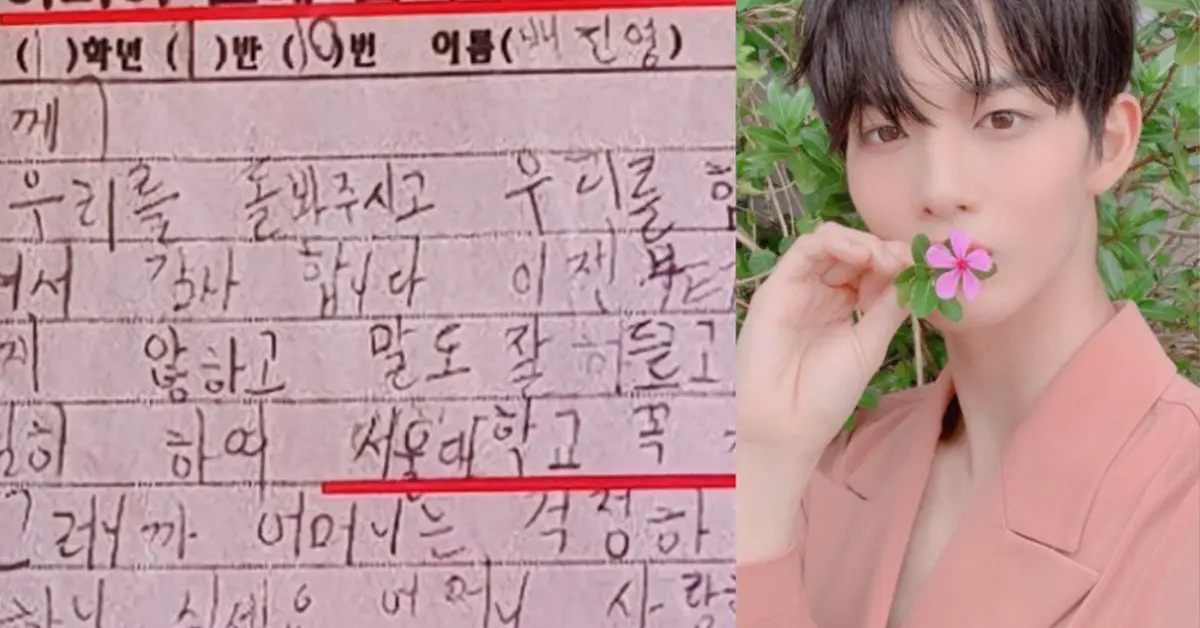 ( 1 )학년 ( 1 )반 (10)번 이름(배진영)
께
우리를 돌봐주시고 우리를
서 감사 합니다 이진부터
지 않하고 말도 잘 듣고
히 하여 서울대학교 꼭
그러니까 어머니는 걱정하
어머니 사랑